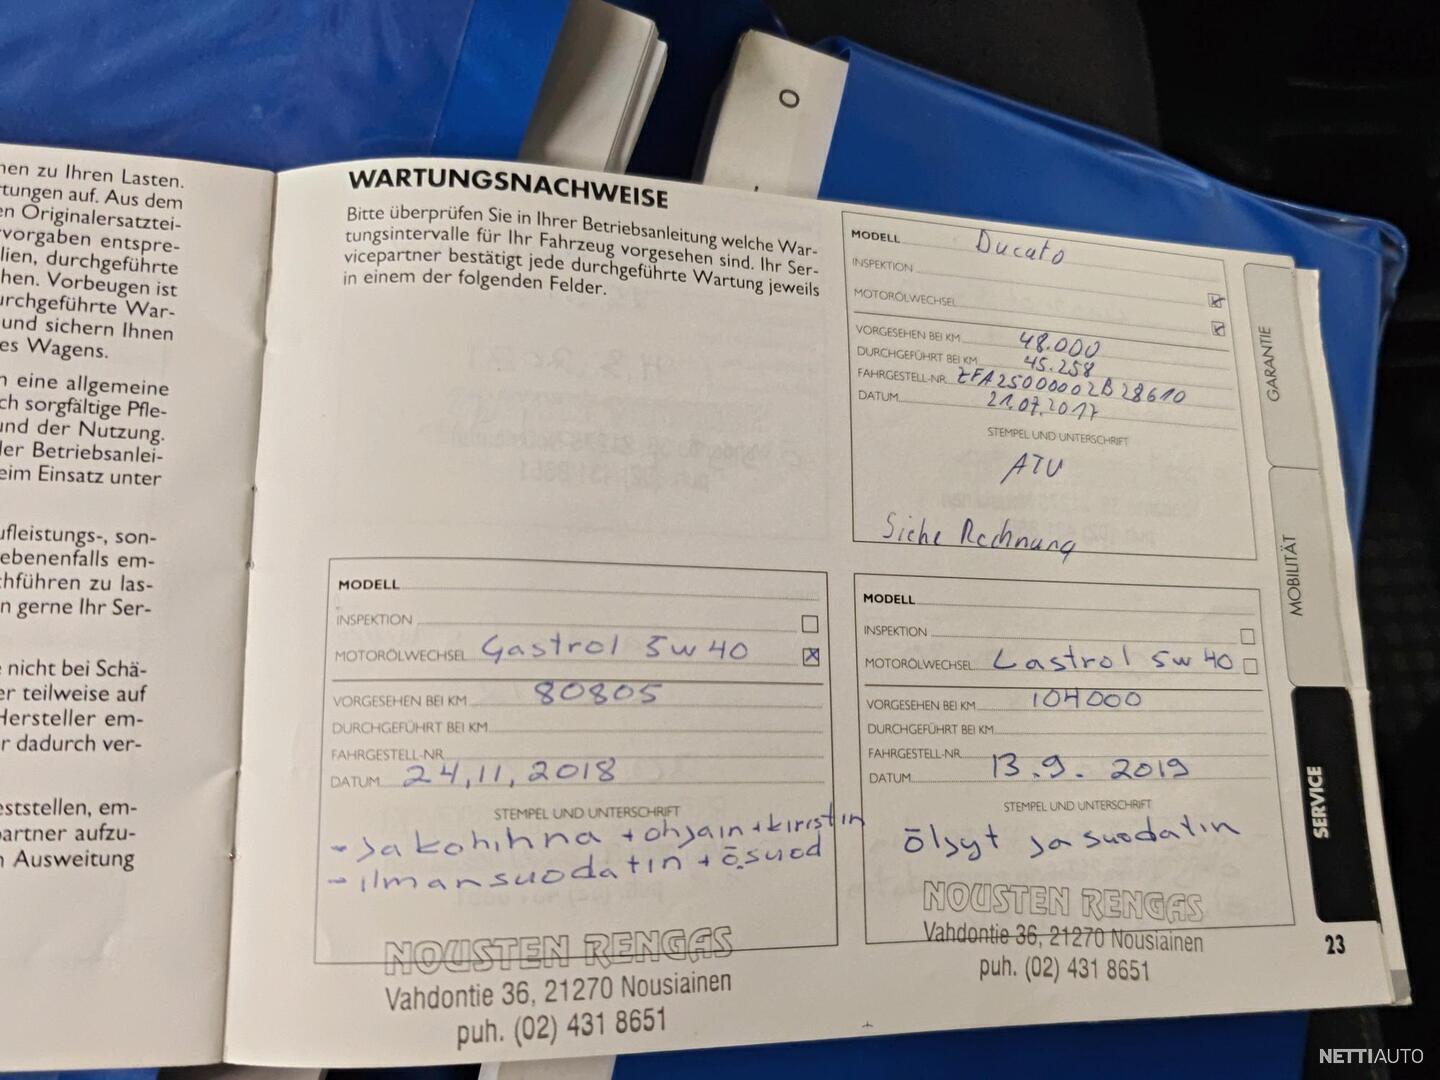 O
nen zu Ihren Lasten.
rtungen auf. Aus dem
en Originalersatztei-
vorgaben entspre-
lien, durchgeführte
hen. Vorbeugen ist
urchgeführte War-
und sichern Ihnen
es Wagens.
n eine allgemeine
ch sorgfältige Pfle-
und der Nutzung.
ler Betriebsanlei-
eim Einsatz unter
ufleistungs-, son-
ebenenfalls em-
hführen zu las-
n gerne Ihr Ser-
e nicht bei Schä-
er teilweise auf
Hersteller em-
r dadurch ver-
eststellen, em-
partner aufzu-
n Ausweitung
WARTUNGSNACHWEISE
Bitte überprüfen Sie in Ihrer Betriebsanleitung welche War-
tungsintervalle für Ihr Fahrzeug vorgesehen sind. Ihr Ser-
vicepartner bestätigt jede durchgeführte Wartung jeweils
in einem der folgenden Felder.
MODELL Ducato
INSPEKTION
MOTORÖLWECHSEL
VORGESEHEN BEI KM 48.000
DURCHGEFÜHRT BEI KM 45.258
FAHRGESTELL-NR. ZFA25000002B28610
DATUM 21.07.2017
STEMPEL UND UNTERSCHRIFT
ATU
Siehe Rechnung
MODELL
INSPEKTION
MOTORÖLWECHSEL Castrol 5w40
VORGESEHEN BEI KM 80805
DURCHGEFÜHRT BEI KM
FAHRGESTELL-NR.
DATUM 24,11,2018
STEMPEL UND UNTERSCHRIFT
- jakohihna + ohjain + kiristin
- ilmansuodatin + ö.suod
NOUSTEN RENGAS
Vahdontie 36, 21270 Nousiainen
puh. (02) 431 8651
MODELL
INSPEKTION
MOTORÖLWECHSEL Castrol 5w40
VORGESEHEN BEI KM 104000
DURCHGEFÜHRT BEI KM
FAHRGESTELL-NR.
DATUM 13.9. 2019
STEMPEL UND UNTERSCHRIFT
öljyt ja suodatin
NOUSTEN RENGAS
Vahdontie 36, 21270 Nousiainen
puh. (02) 431 8651
GARANTIE
MOBILITÄT
SERVICE
23
NETTIAUTO